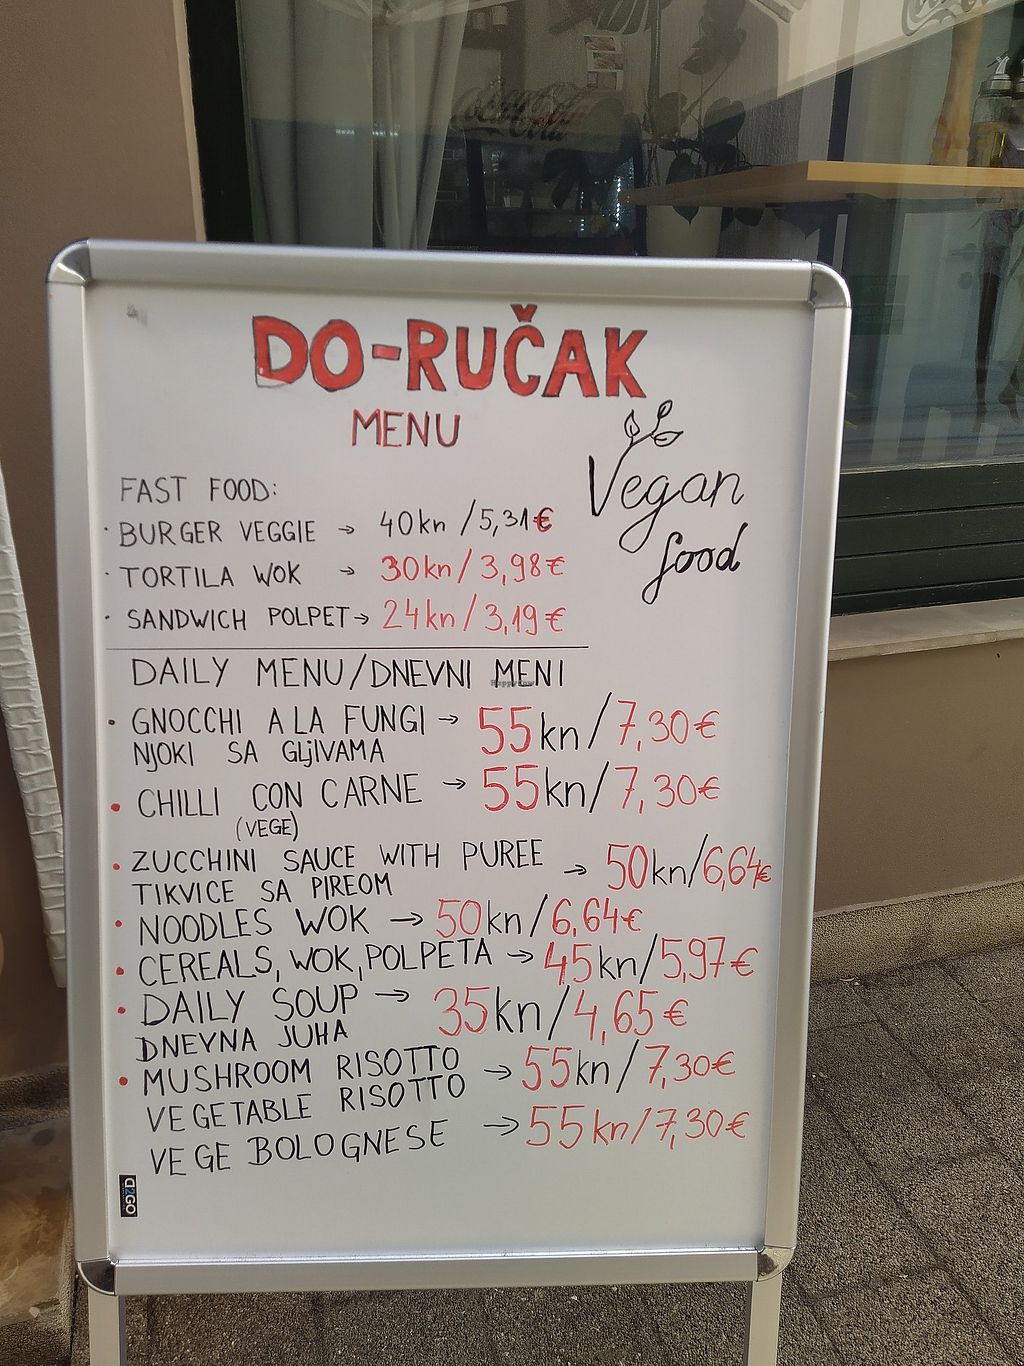 Coca-Cola
DO-RUČAK
MENU
Vegan
food
FAST FOOD:
· BURGER VEGGIE → 40kn / 5,31€
· TORTILA WOK → 30kn / 3,98€
· SANDWICH POLPET → 24kn / 3,19€
DAILY MENU/DNEVNI MENI
• GNOCCHI A LA FUNGI → 55kn/7,30€
NJOKI SA GLjIVAMA
• CHILLI CON CARNE → 55kn/7,30€
(VEGE)
• ZUCCHINI SAUCE WITH PUREE → 50kn/6,64€
TIKVICE SA PIREOM
• NOODLES WOK → 50kn/6,64€
• CEREALS, WOK, POLPETA → 45kn/5,97€
• DAILY SOUP → 35kn/4,65€
DNEVNA JUHA
• MUSHROOM RISOTTO → 55kn/7,30€
VEGETABLE RISOTTO
VEGE BOLOGNESE → 55kn/7,30€
HappyCow